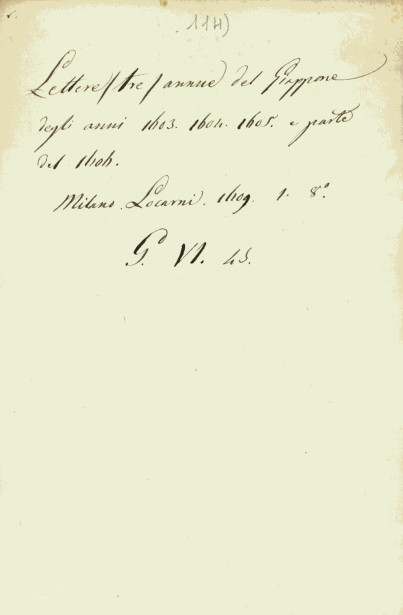 114)
Lettere (tre) annue del Giappone
degli anni 1603. 1604. 1605. e parte
del 1606.
Milano. Locarni. 1609. 1. 8.°
G. VI. 45.